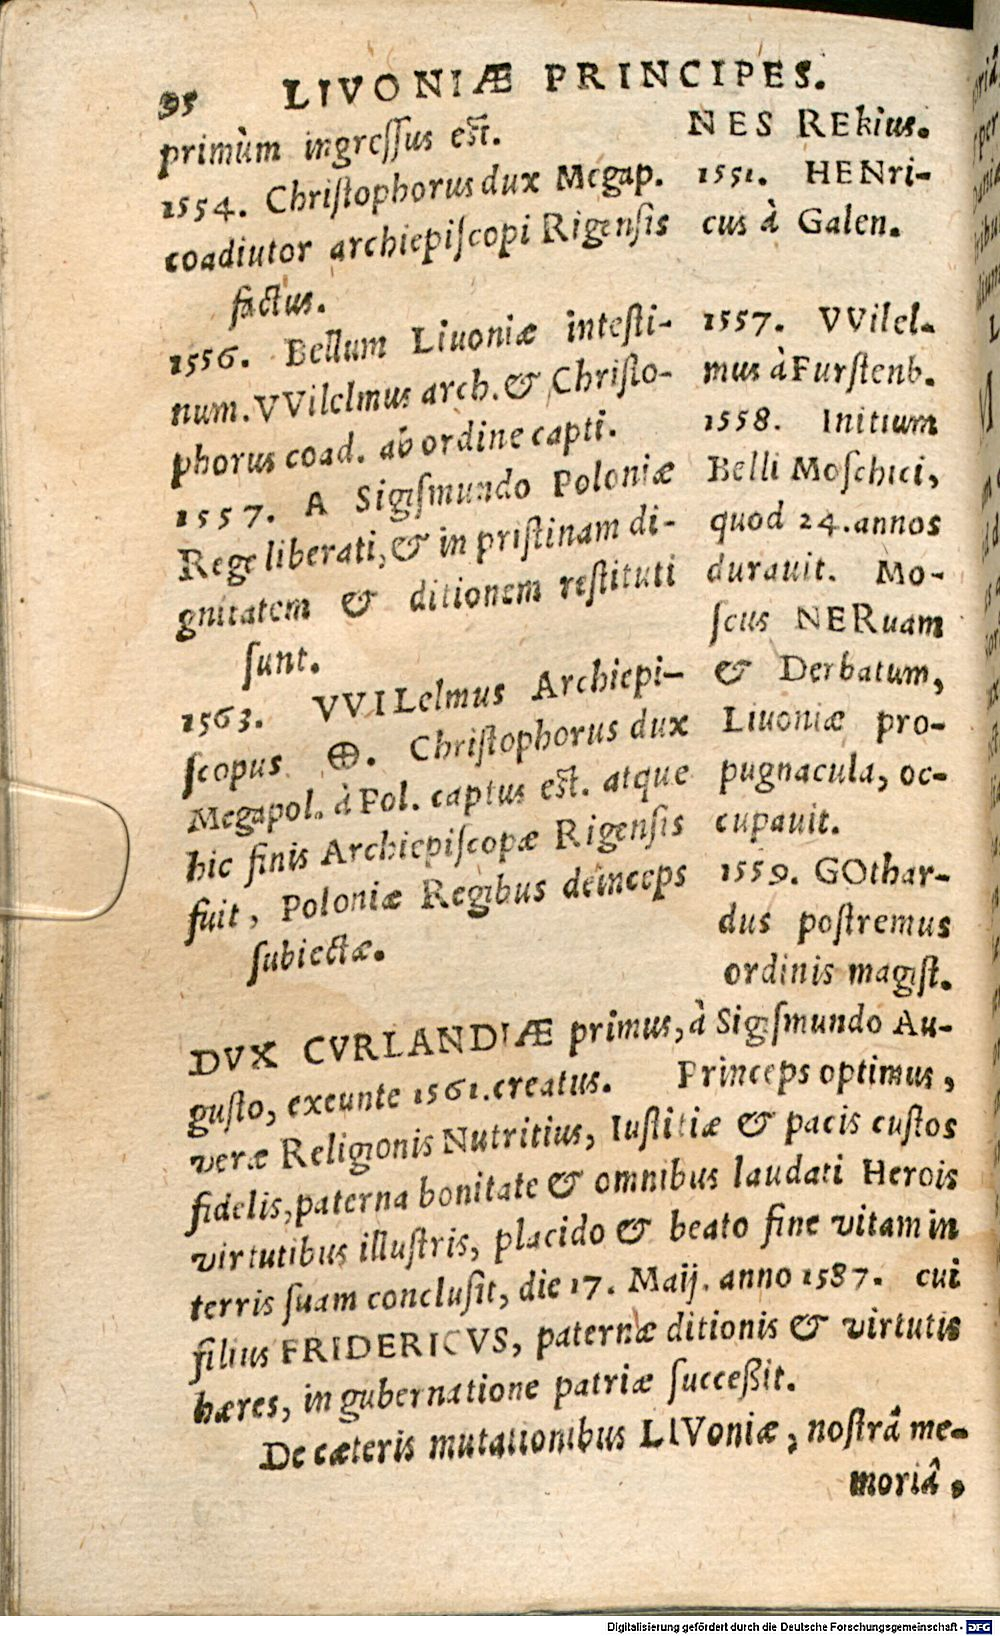 95 LIVONIÆ PRINCIPES.
primùm ingreſſus eſt.
1554. Chriſtophorus dux Megap.
coadiutor archiepiſcopi Rigenſis
factus.
1556. Bellum Liuoniæ inteſti-
num. VVilelmus arch. & Chriſto-
phorus coad. ab ordine capti.
1557. A Sigiſmundo Poloniæ
Rege liberati, & in priſtinam di-
gnitatem & ditionem reſtituti
ſunt.
1563. VVILelmus Archiepi-
ſcopus ⊕. Chriſtophorus dux
Megapol. à Pol. captus eſt. atque
hic finis Archiepiſcopæ Rigenſis
fuit, Poloniæ Regibus deinceps
ſubiectæ.
NES REkius.
1551. HENri-
cus à Galen.
1557. VVilel-
mus à Furſtenb.
1558. Initium
Belli Moſchici,
quod 24. annos
durauit. Mo-
ſcus NERuam
& Derbatum,
Liuoniæ pro-
pugnacula, oc-
cupauit.
1559. GOthar-
dus poſtremus
ordinis magiſt.
DVX CVRLANDIÆ primus, à Sigiſmundo Au-
guſto, exeunte 1561. creatus. Princeps optimus,
veræ Religionis Nutritius, Iuſtitiæ & pacis cuſtos
fidelis, paterna bonitate & omnibus laudati Herois
virtutibus illuſtris, placido & beato fine vitam in
terris ſuam concluſit, die 17. Maij. anno 1587. cui
filius FRIDERICVS, paternæ ditionis & virtutis
hæres, in gubernatione patriæ ſucceßit.
De cæteris mutationibus LIVoniæ, noſtrâ me-
moriâ,
Digitalisierung gefördert durch die Deutsche Forschungsgemeinschaft - DFG